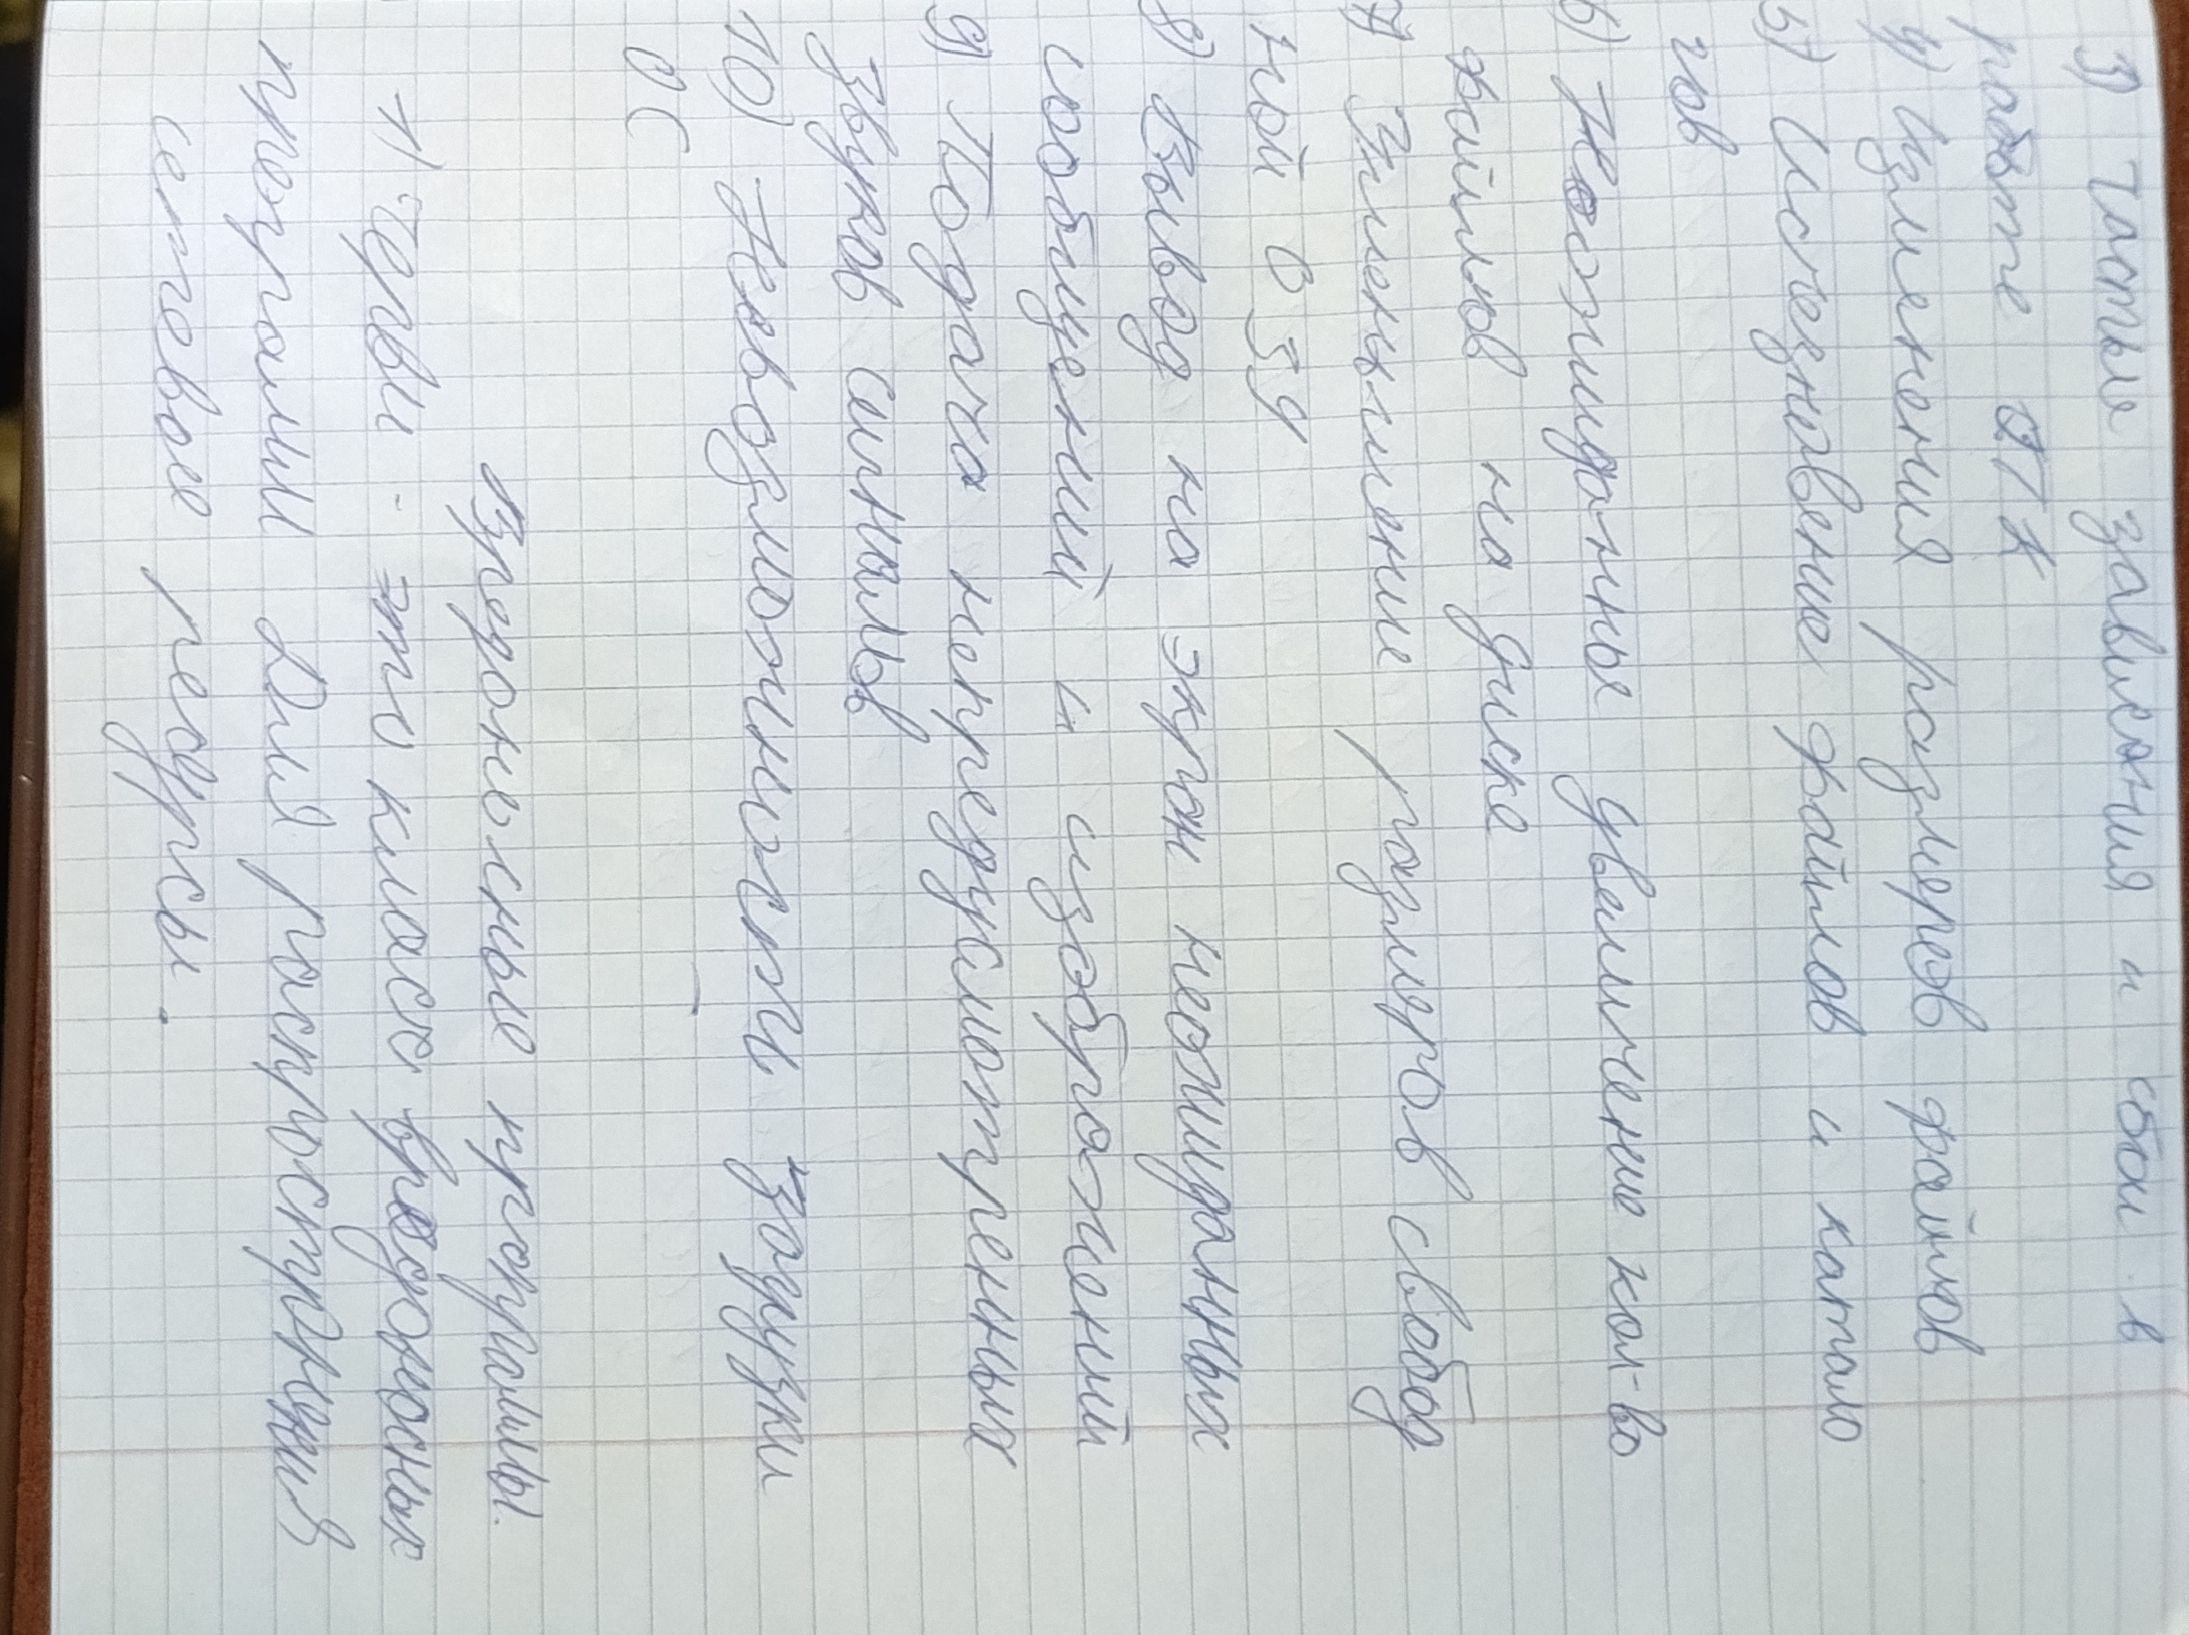 3) Частые зависания и сбои в
работе ПК
4) Изменения размеров файлов
5) Исчезновение файлов и катало
гов
6) Неожиданное увеличение кол-во
файлов на диске
7) Уменьшение размеров свобод
ной ОЗУ
8) Вывод на экран неожиданных
сообщений и изображений
9) Подача непредусмотренных
звуков сигналов
10) Невозможности загрузки
ОС
Вредоносные программы.
1) Черви - это класс вредоносных
программ для распространения
сетевое ресурсы.